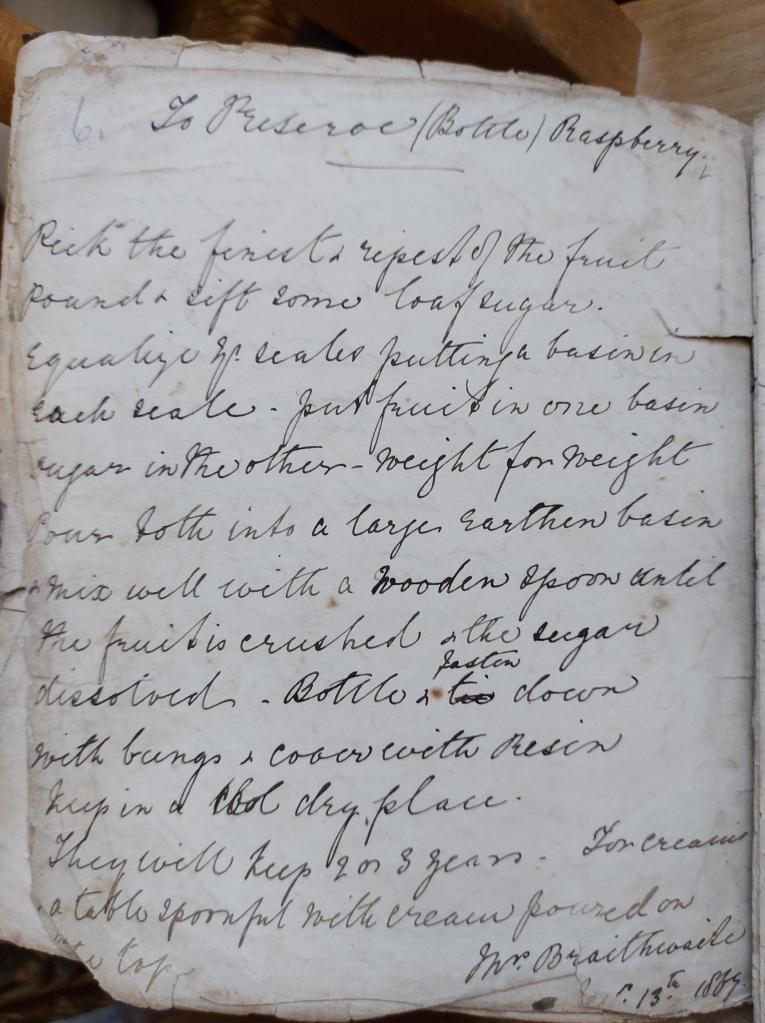 6. To Preserve (Bottle) Raspberry.
Pick the finest & ripest of the fruit
Pound & sift some loaf sugar.
Equalize ye. scales putting a basin in
each scale - put fruit in one basin
sugar in the other - weight for weight
Pour both into a large earthen basin
& mix well with a wooden spoon until
the fruit is crushed & the sugar
fasten
dissolved - Bottle & tie down
with bungs & cover with Resin
Keep in a cool dry place.
They will keep 2 or 3 years - For creams
a table spoonful with cream poured on
the top
Mrs. Braithwaite
13th 1869.